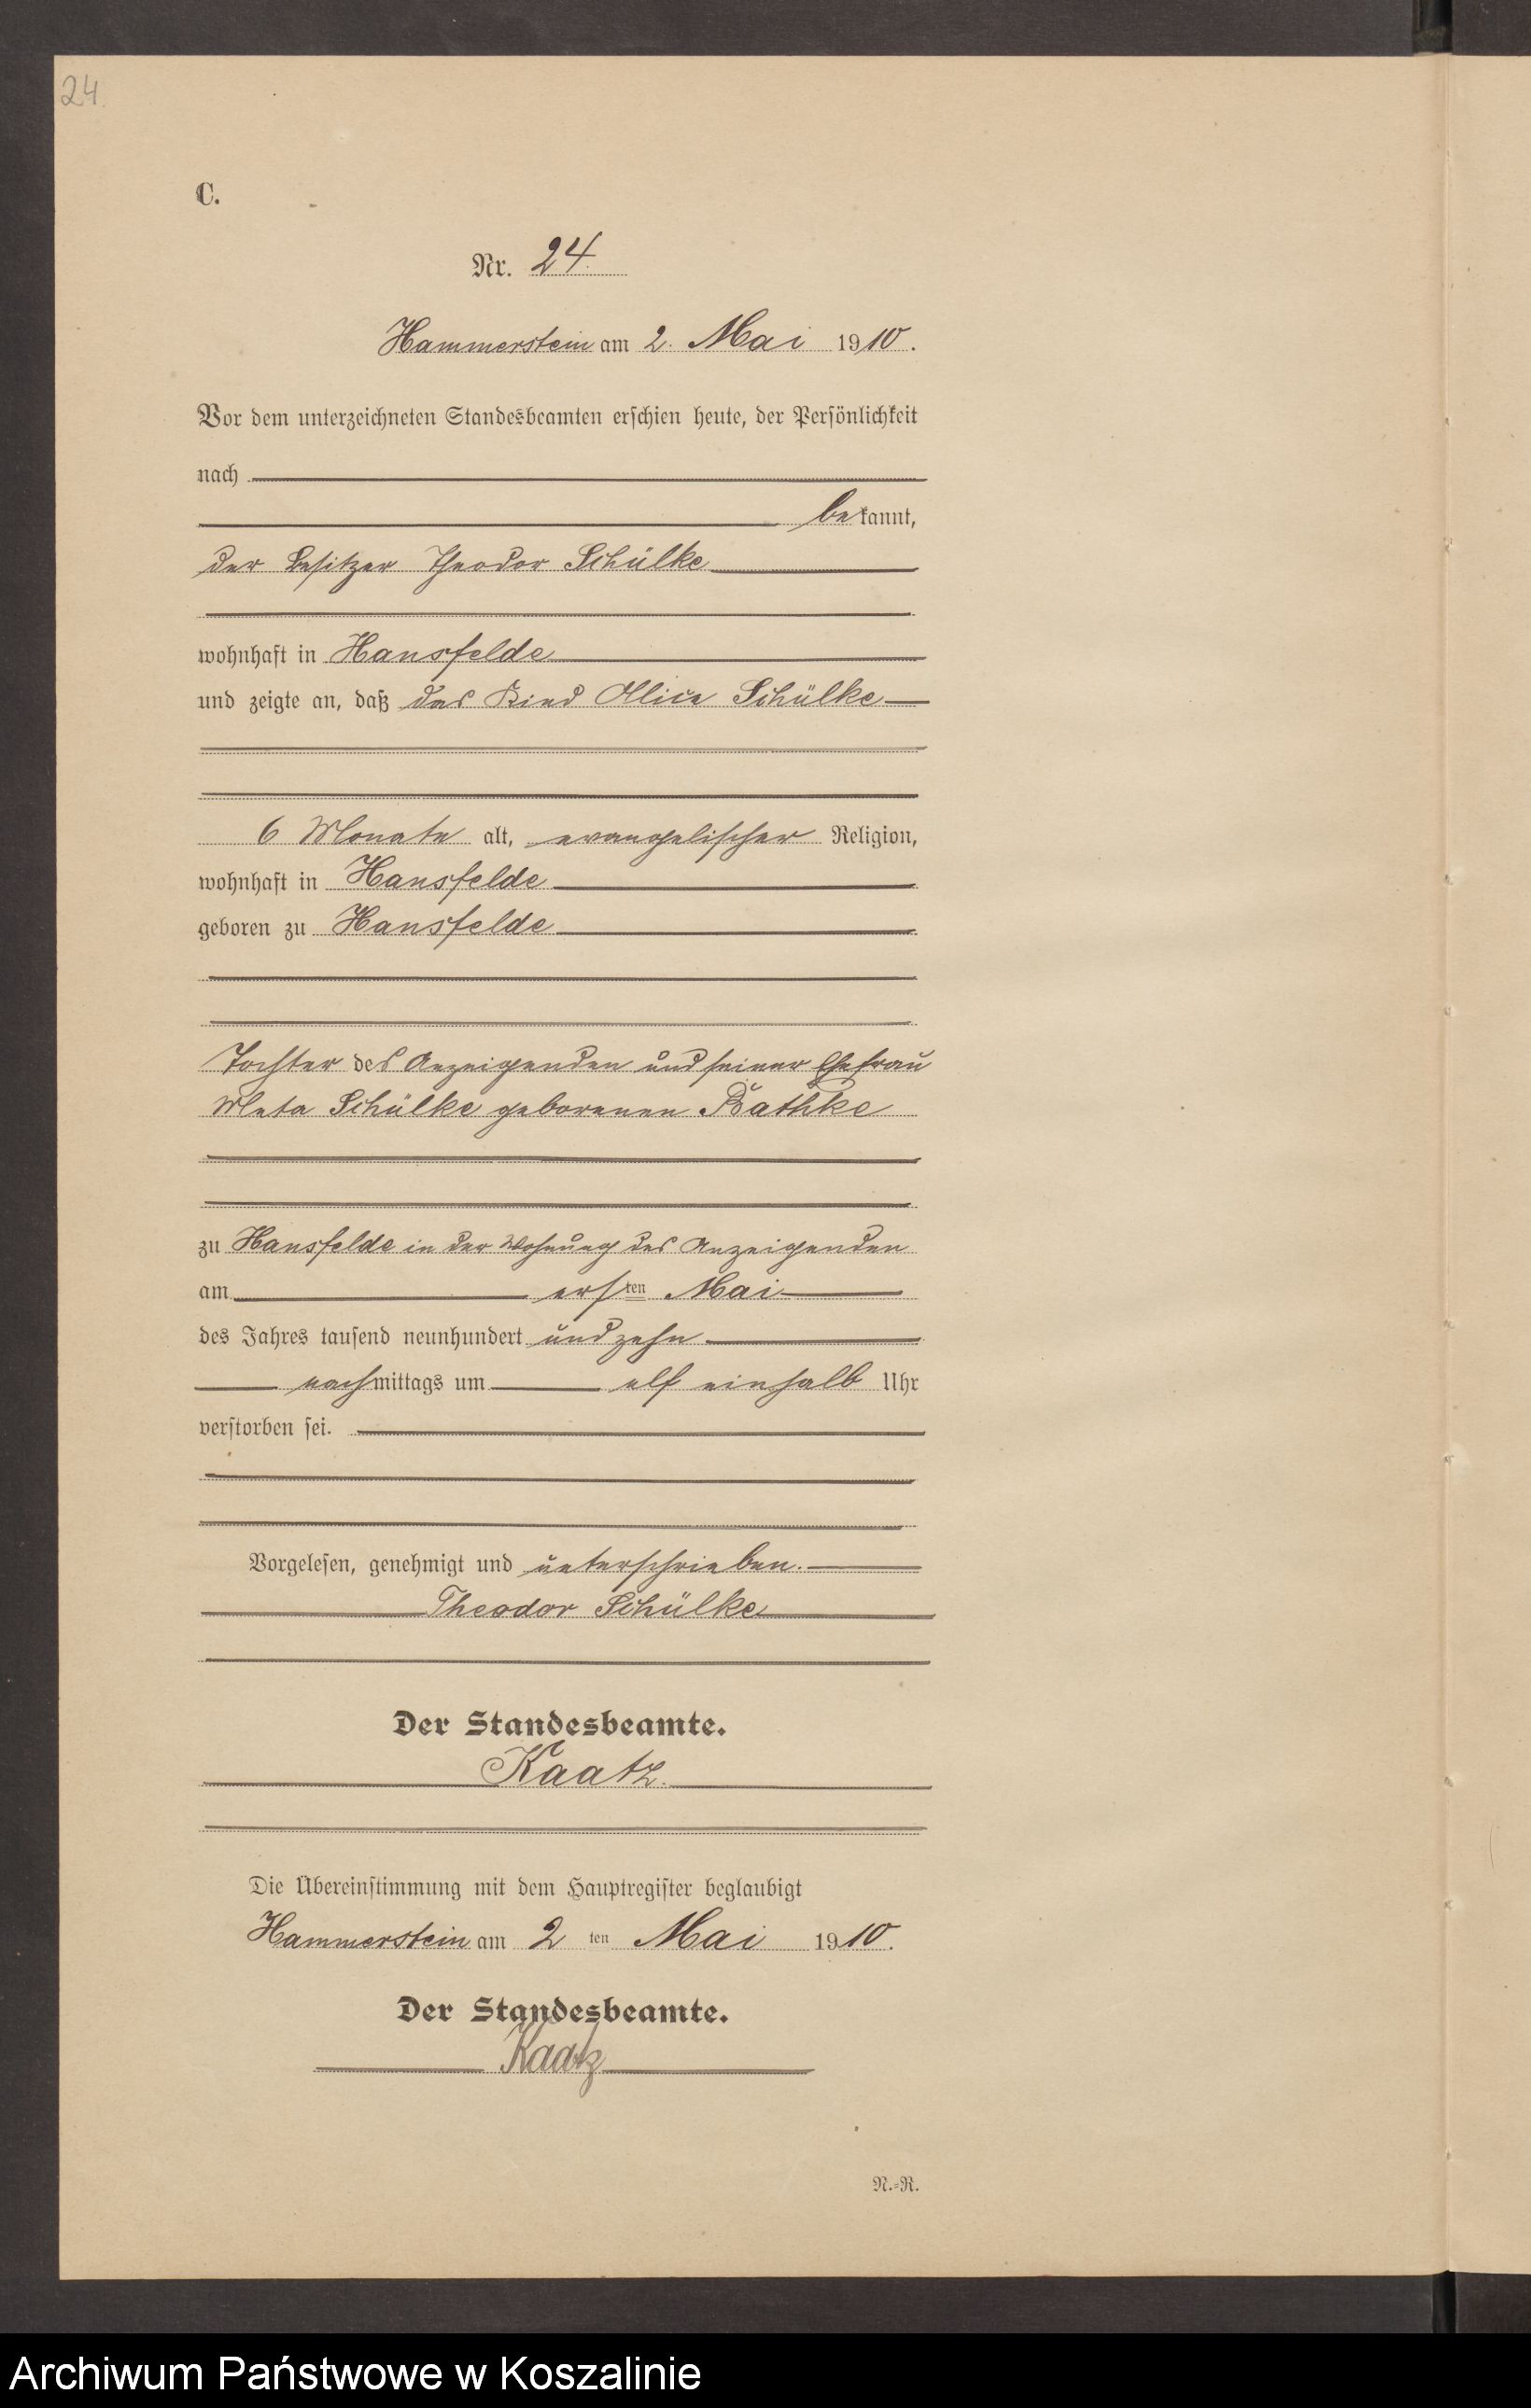 24.
C.
Nr. 24.
Hammerstein am 2. Mai 1910.
Vor dem unterzeichneten Standesbeamten erschien heute, der Persönlichkeit
nach
bekannt,
der Besitzer Theodor Schülke
wohnhaft in Hansfelde
und zeigte an, daß das Kind Alice Schülke
6 Monate alt, evangelischer Religion,
wohnhaft in Hansfelde
geboren zu Hansfelde
Tochter des Anzeigenden und seiner Ehefrau
Meta Schülke geborenen Rathke
zu Hansfelde in der Wohnung des Anzeigenden
am ersten Mai
des Jahres tausend neunhundert und zehn
nachmittags um elf einhalb Uhr
verstorben sei.
Vorgelesen, genehmigt und unterschrieben.
Theodor Schülke
Der Standesbeamte.
Kaatz.
Die Übereinstimmung mit dem Hauptregister beglaubigt
Hammerstein am 2 ten Mai 1910.
Der Standesbeamte.
Kaatz
N.=R.
Archiwum Państwowe w Koszalinie